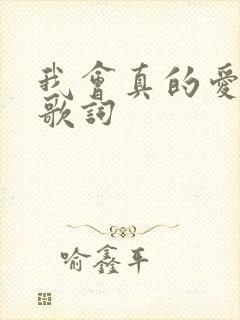 我會真的愛
歌詞
喻鑫平